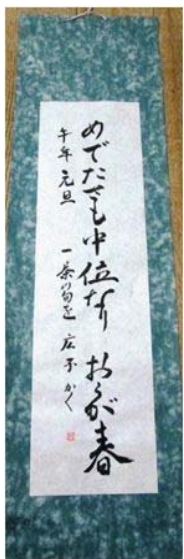 めでたさも中位なり おらが春
午年 元旦 一茶の句を 広子 かく